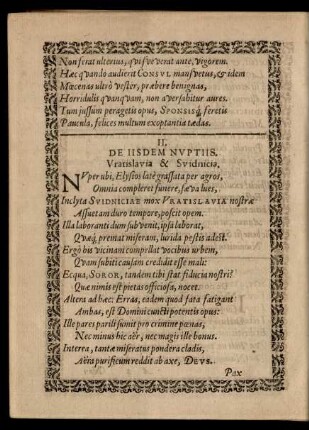 Non ferat ulterius, qui se venerat ante, vigorem.
Hæc qvando audierit CONSVL mansvetus, & idem
Mœcenas ultrò vester, præbere benignas,
Horridulis qvanqvam, non aversabitur aures.
Tum jussum peragetis opus, SPONSISq́; feretis
Paucula, felices multum exoptantia tædas.
II.
DE IISDEM NVPTIIS.
Vratislavia & Svidnicia,
NVper ubi, Elysios latè grassata per agros,
Omnia compleret funere, sæva lues,
Inclyta SVIDNICIÆ mox VRATISLAVIA nostræ
Assuetam duro tempore, poscit opem.
Illa laboranti dum subvenit, ipsa laborat,
Qvæq́; premat miseram, lurida pestis adest.
Ergò bis vicinam compellat vocibus urbem,
Qvam subiti causam credidit esse mali:
Ecqua, SOROR, tandem tibi stat fiducia nostri?
Quæ nimis est pietas officiosa, nocet.
Altera ad hæc: Erras, eadem quod fata fatigant
Ambas, est Domini cuncti potentis opus:
Ille pares parili sumit pro crimine pœnas,
Nec minus hic aër, nec magis ille bonus.
Interea, tantæ miseratus pondera cladis,
Aëra purificum reddit ab axe, DEVS.
Pax